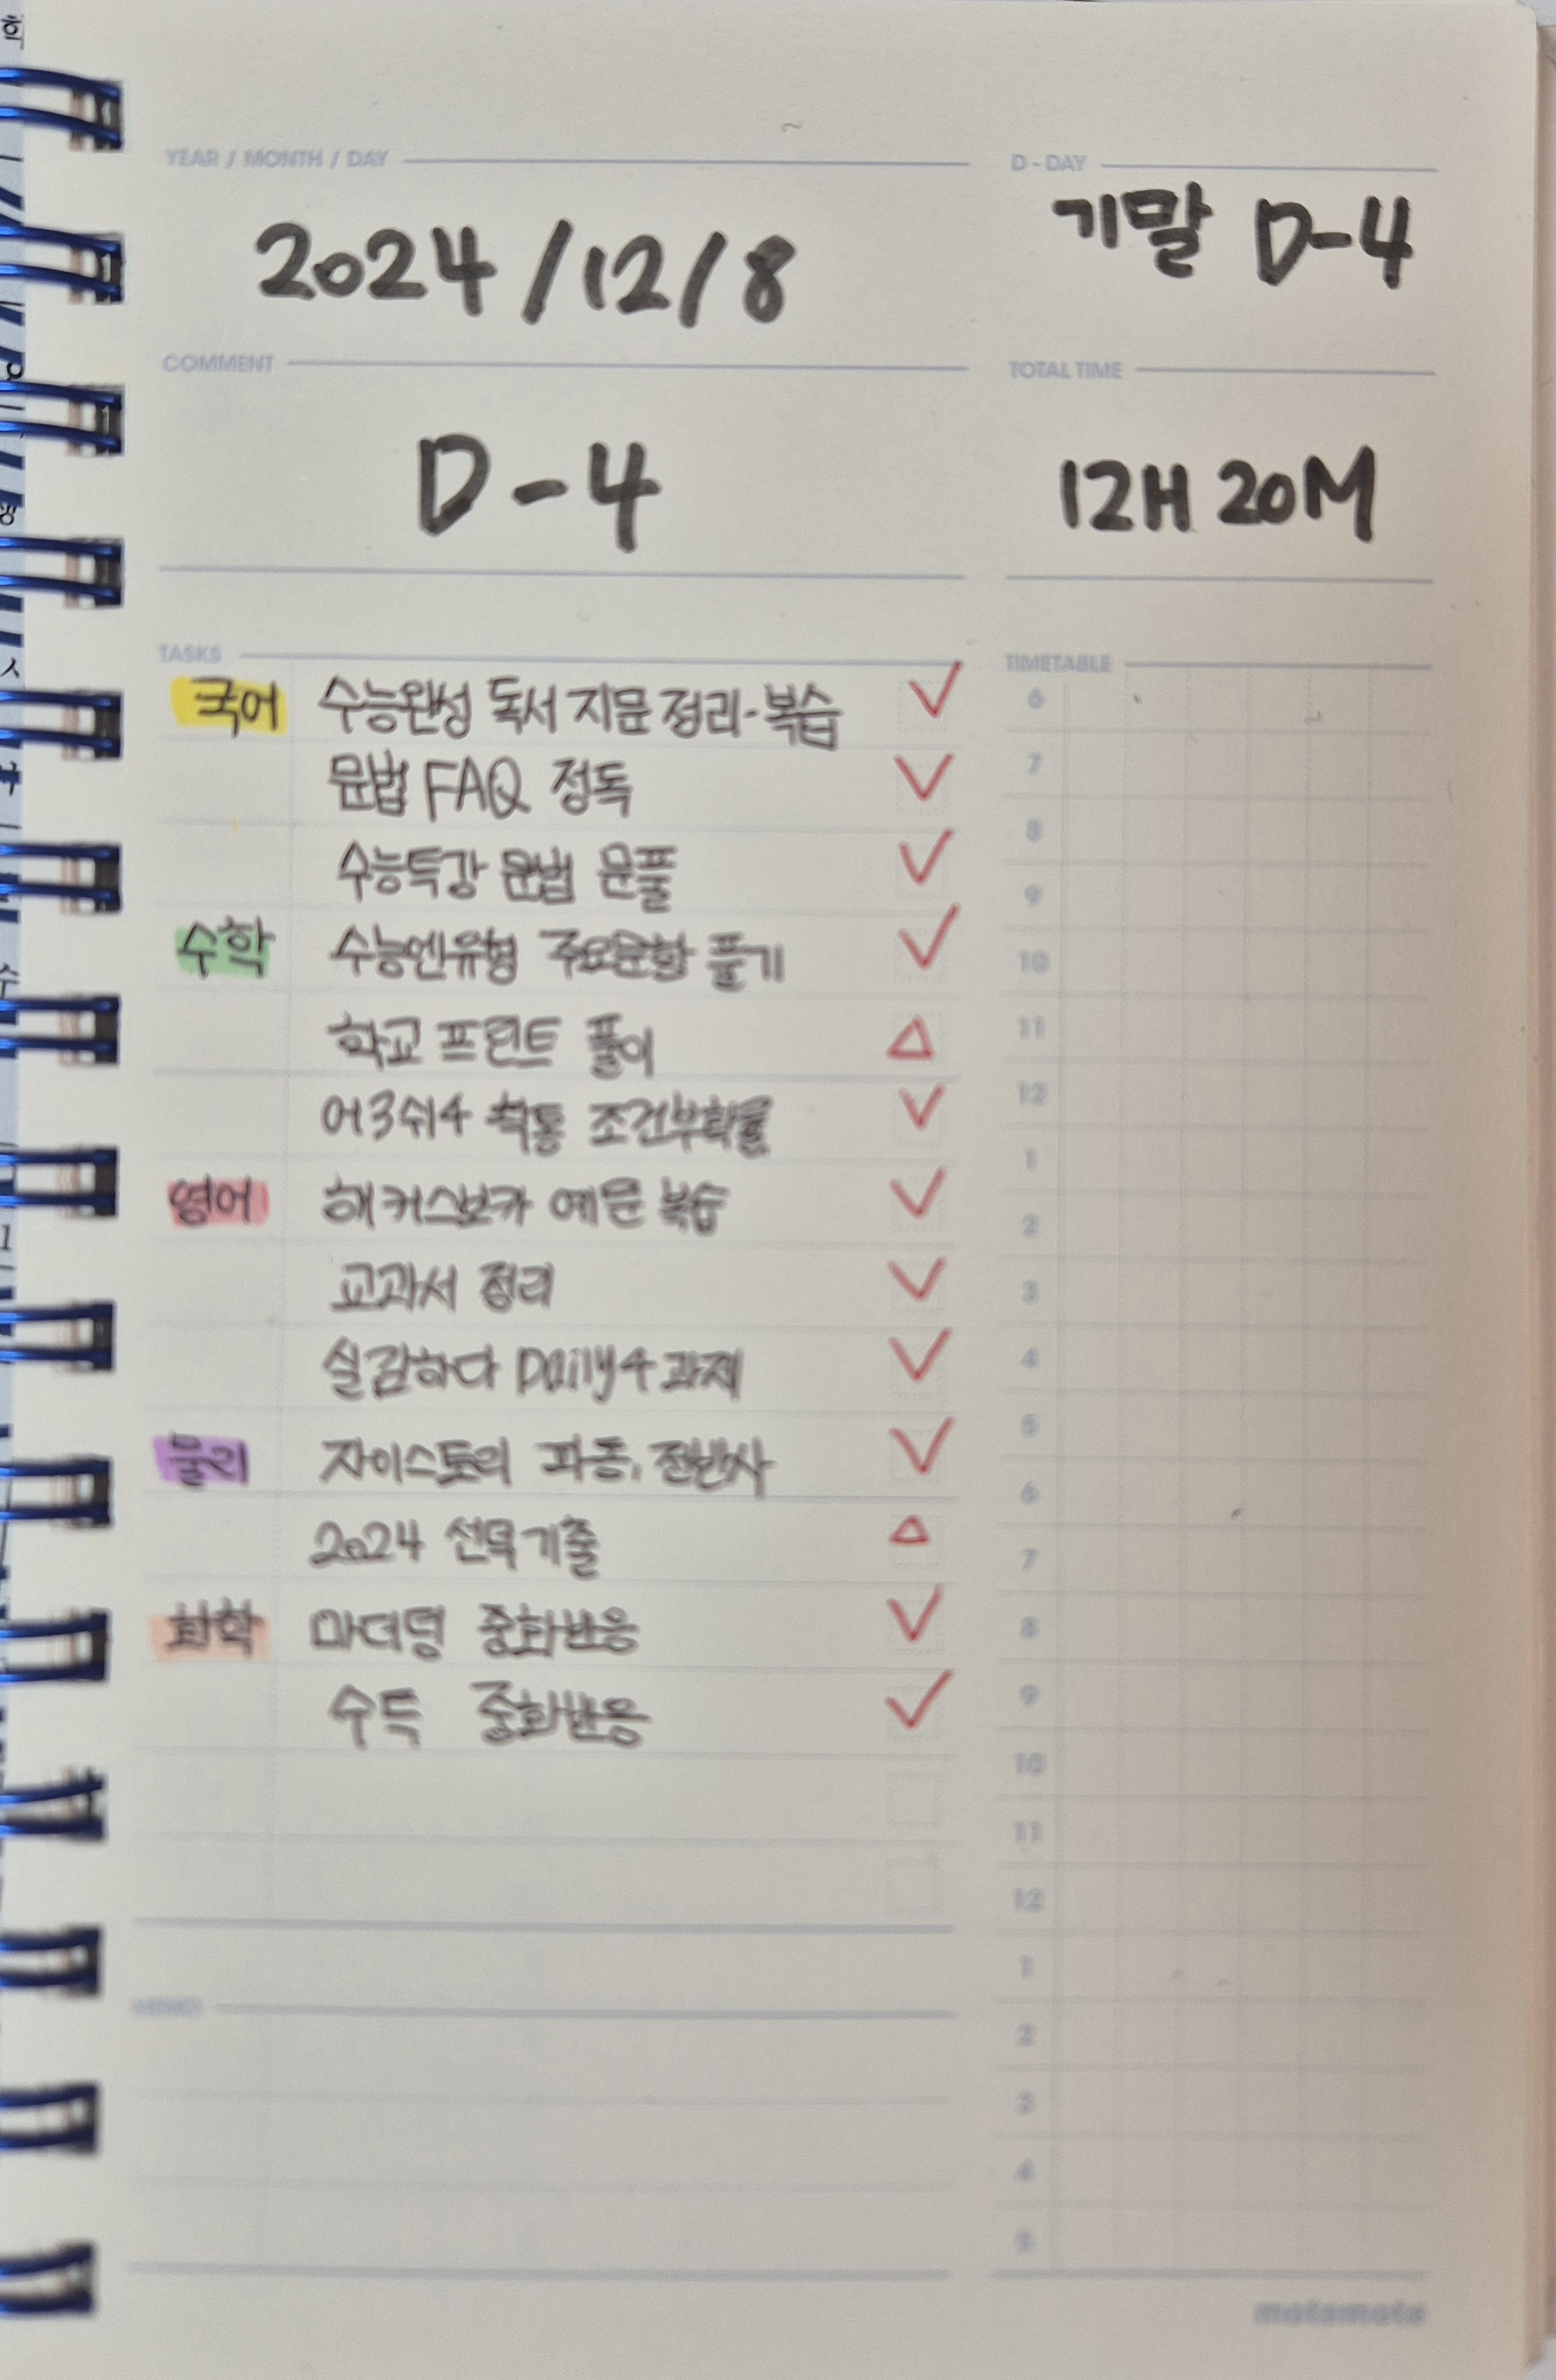 YEAR / MONTH / DAY
2024/12/8
D-DAY
기말 D-4
COMMENT
D-4
TOTAL TIME
12H 20M
TASKS
국어 수능완성 독서 지문 정리-복습
문법 FAQ 정독
수능특강 문법 문풀
수학 수능엔유형 주요문항 풀기
학교 프린트 풀이
어3쉬4 확통 조건부확률
영어 해커스보카 예문 복습
교과서 정리
실감하다 Daily4 과제
물리 자이스토리 파동, 전반사
2024 선택기출
화학 마더텅 중화반응
수특 중화반응
MEMO
TIMETABLE
6
7
8
9
10
11
12
1
2
3
4
5
6
7
8
9
10
11
12
1
2
3
4
5
motemote